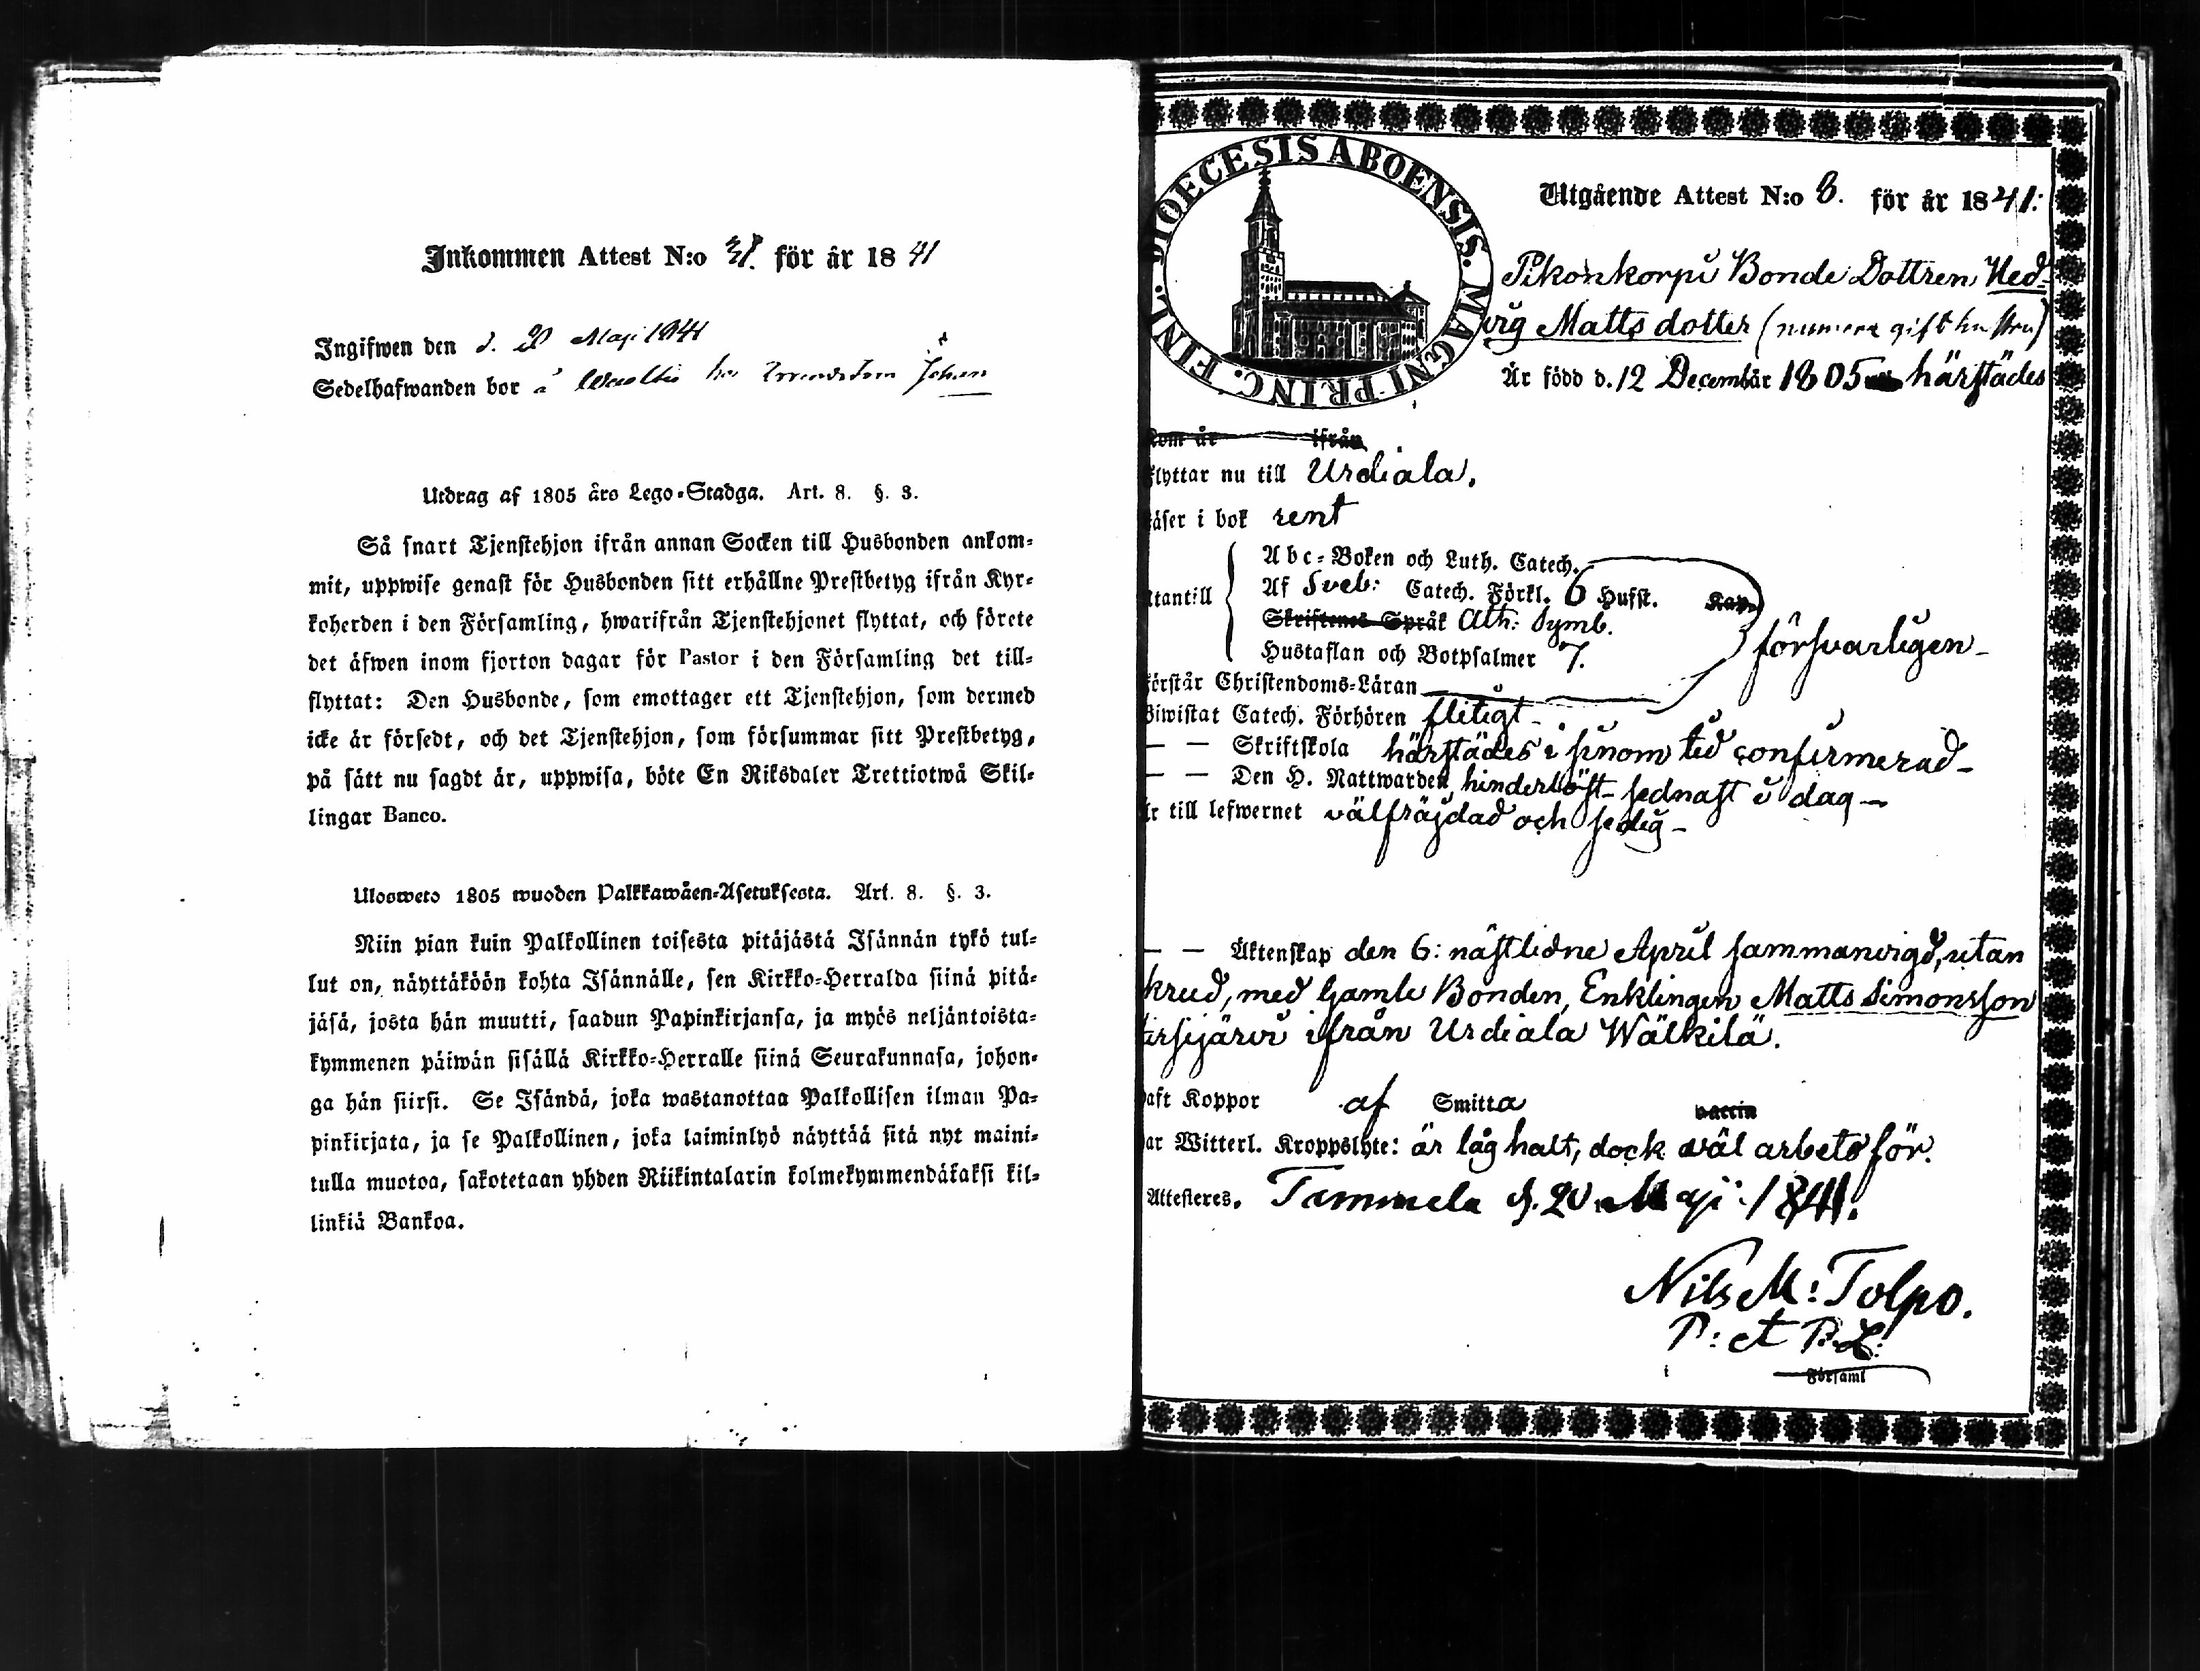 Inkommen Attest N:o 31. för år 1841
Ingifwen den d. 20 Maji 1841
Sedelhafwanden bor å hos Johan
Utdrag af 1805 års Lego-Stadga. Art. 8. §. 3.
Så snart Tjenstehjon ifrån annan Socken till Husbonden ankom-
mit, uppwise genast för Husbonden sitt erhållne Prestbetyg ifrån Kyr-
koherden i den Församling, hwarifrån Tjenstehjonet flyttat, och förete
det äfwen inom fjorton dagar för Pastor i den Församling det till-
flyttat: Den Husbonde, som emottager ett Tjenstehjon, som dermed
icke är försedt, och det Tjenstehjon, som försummar sitt Prestbetyg,
på sätt nu sagdt är, uppwisa, böte En Riksdaler Trettiotwå Skil-
lingar Banco.
Ulosweto 1805 wuoden Palkkawäen-Asetuksesta. Art. 8. §. 3.
Niin pian kuin Palkollinen toisesta pitäjästä Isännän tykö tul-
lut on, näyttäköön kohta Isännälle, sen Kirkko-Herralda siinä pitä-
jäsä, josta hän muutti, saadun Papinkirjansa, ja myös neljäntoista-
kymmenen päiwän sisällä Kirkko-Herralle siinä Seurakunnasa, johon-
ga hän siirsi. Se Isändä, joka wastanottaa Palkollisen ilman Pa-
pinkirjata, ja se Palkollinen, joka laiminlyö näyttää sitä nyt maini-
tulla muotoa, sakotetaan yhden Riikintalarin kolmekymmendäkaksi kil-
linkiä Bankoa.
DIOECESIS ABOENSIS. MAGNI PRINC. FINL.
Utgående Attest N:o 8. för år 1841:
Pikonkorpi Bonde Dottren Hed-
vig Matts dotter (numera gift hustru)
Är född d. 12 December 1805 härstädes
Kom år ifrån
flyttar nu till Urdiala.
läser i bok rent
Utantill
Abc-Boken och Luth. Catech.
Af Sveb: Catech. Förkl. 6 Hufst. Kap.
Skriftenes Språk Ath: Symb.
Hustaflan och Botpsalmer 7.
försvarligen-
förstår Christendoms-Läran
Biwistat Catech. Förhören flitigt-
— — Skriftskola härstädes i sinom tid confirmerad-
— — Den H. Nattwarden hinderlöst- sednast i dag-
Är till lefwernet välfräjdad och sedig-
— — Äktenskap den 6: nästledne April sammanvigd, utan
skrud, med Gamle Bonden, Enklingen Matts Simonsson
ifrån Urdiala Wälkilä.
haft Koppor af Smitta vaccin
Har Witterl. Kroppslyte: är låghalt, dock wäl arbetsför.
Attesteres. Tammela d. 20 Maji 1841.
Nils M: Tolpo.
P: et P. L:
Församl